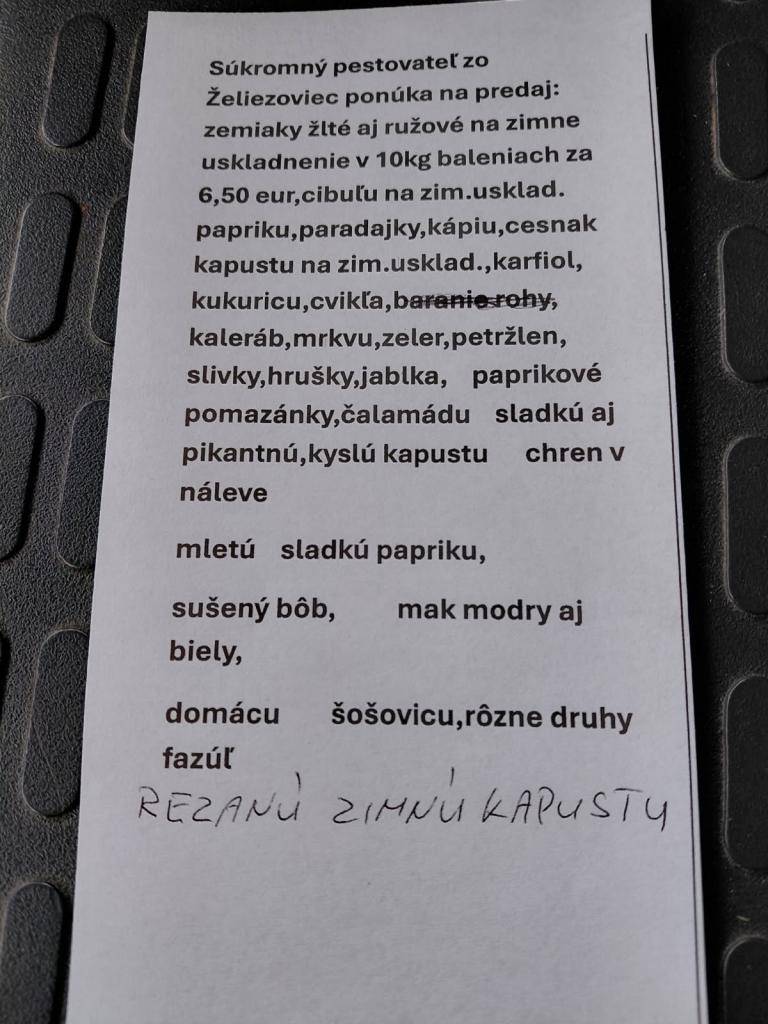 Súkromný pestovateľ zo
Želiezoviec ponúka na predaj:
zemiaky žlté aj ružové na zimne
uskladnenie v 10kg baleniach za
6,50 eur,cibuľu na zim.usklad.
papriku,paradajky,kápiu,cesnak
kapustu na zim.usklad.,karfiol,
kukuricu,cvikľa,baranie rohy,
kaleráb,mrkvu,zeler,petržlen,
slivky,hrušky,jablka, paprikové
pomazánky,čalamádu sladkú aj
pikantnú,kyslú kapustu chren v
náleve
mletú sladkú papriku,
sušený bôb, mak modry aj
biely,
domácu šošovicu,rôzne druhy
fazúľ
REZANÚ ZIMNÚ KAPUSTU